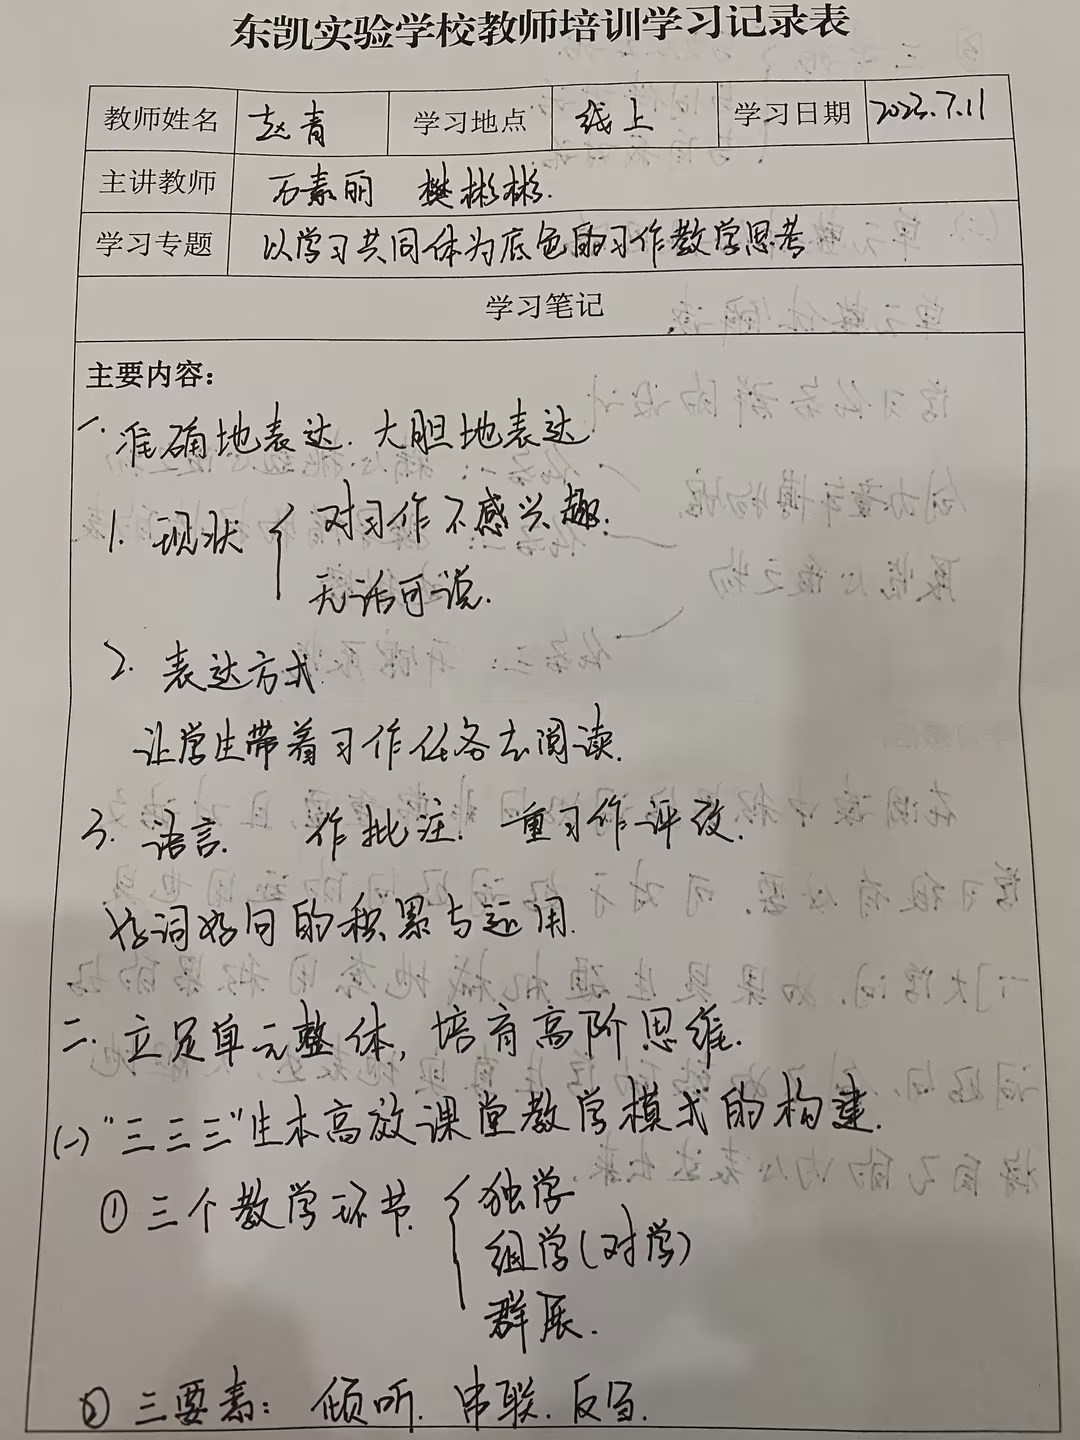 东凯实验学校教师培训学习记录表
教师姓名 赵青 学习地点 线上 学习日期 2023.7.11
主讲教师 万素丽 樊彬彬.
学习专题 以学习共同体为底色的习作教学思考
学习笔记
主要内容：
一. 准确地表达. 大胆地表达
1. 现状 { 对习作不感兴趣.
无话可说.
2. 表达方式.
让学生带着习作任务去阅读.
3. 语言. 作批注. 重习作评改.
好词好句的积累与运用.
二. 立足单元整体, 培育高阶思维.
(一) "三三三"生本高效课堂教学模式的构建.
① 三个教学环节. { 独学
组学(对学)
群展.
② 三要素: 倾听. 串联. 反刍.